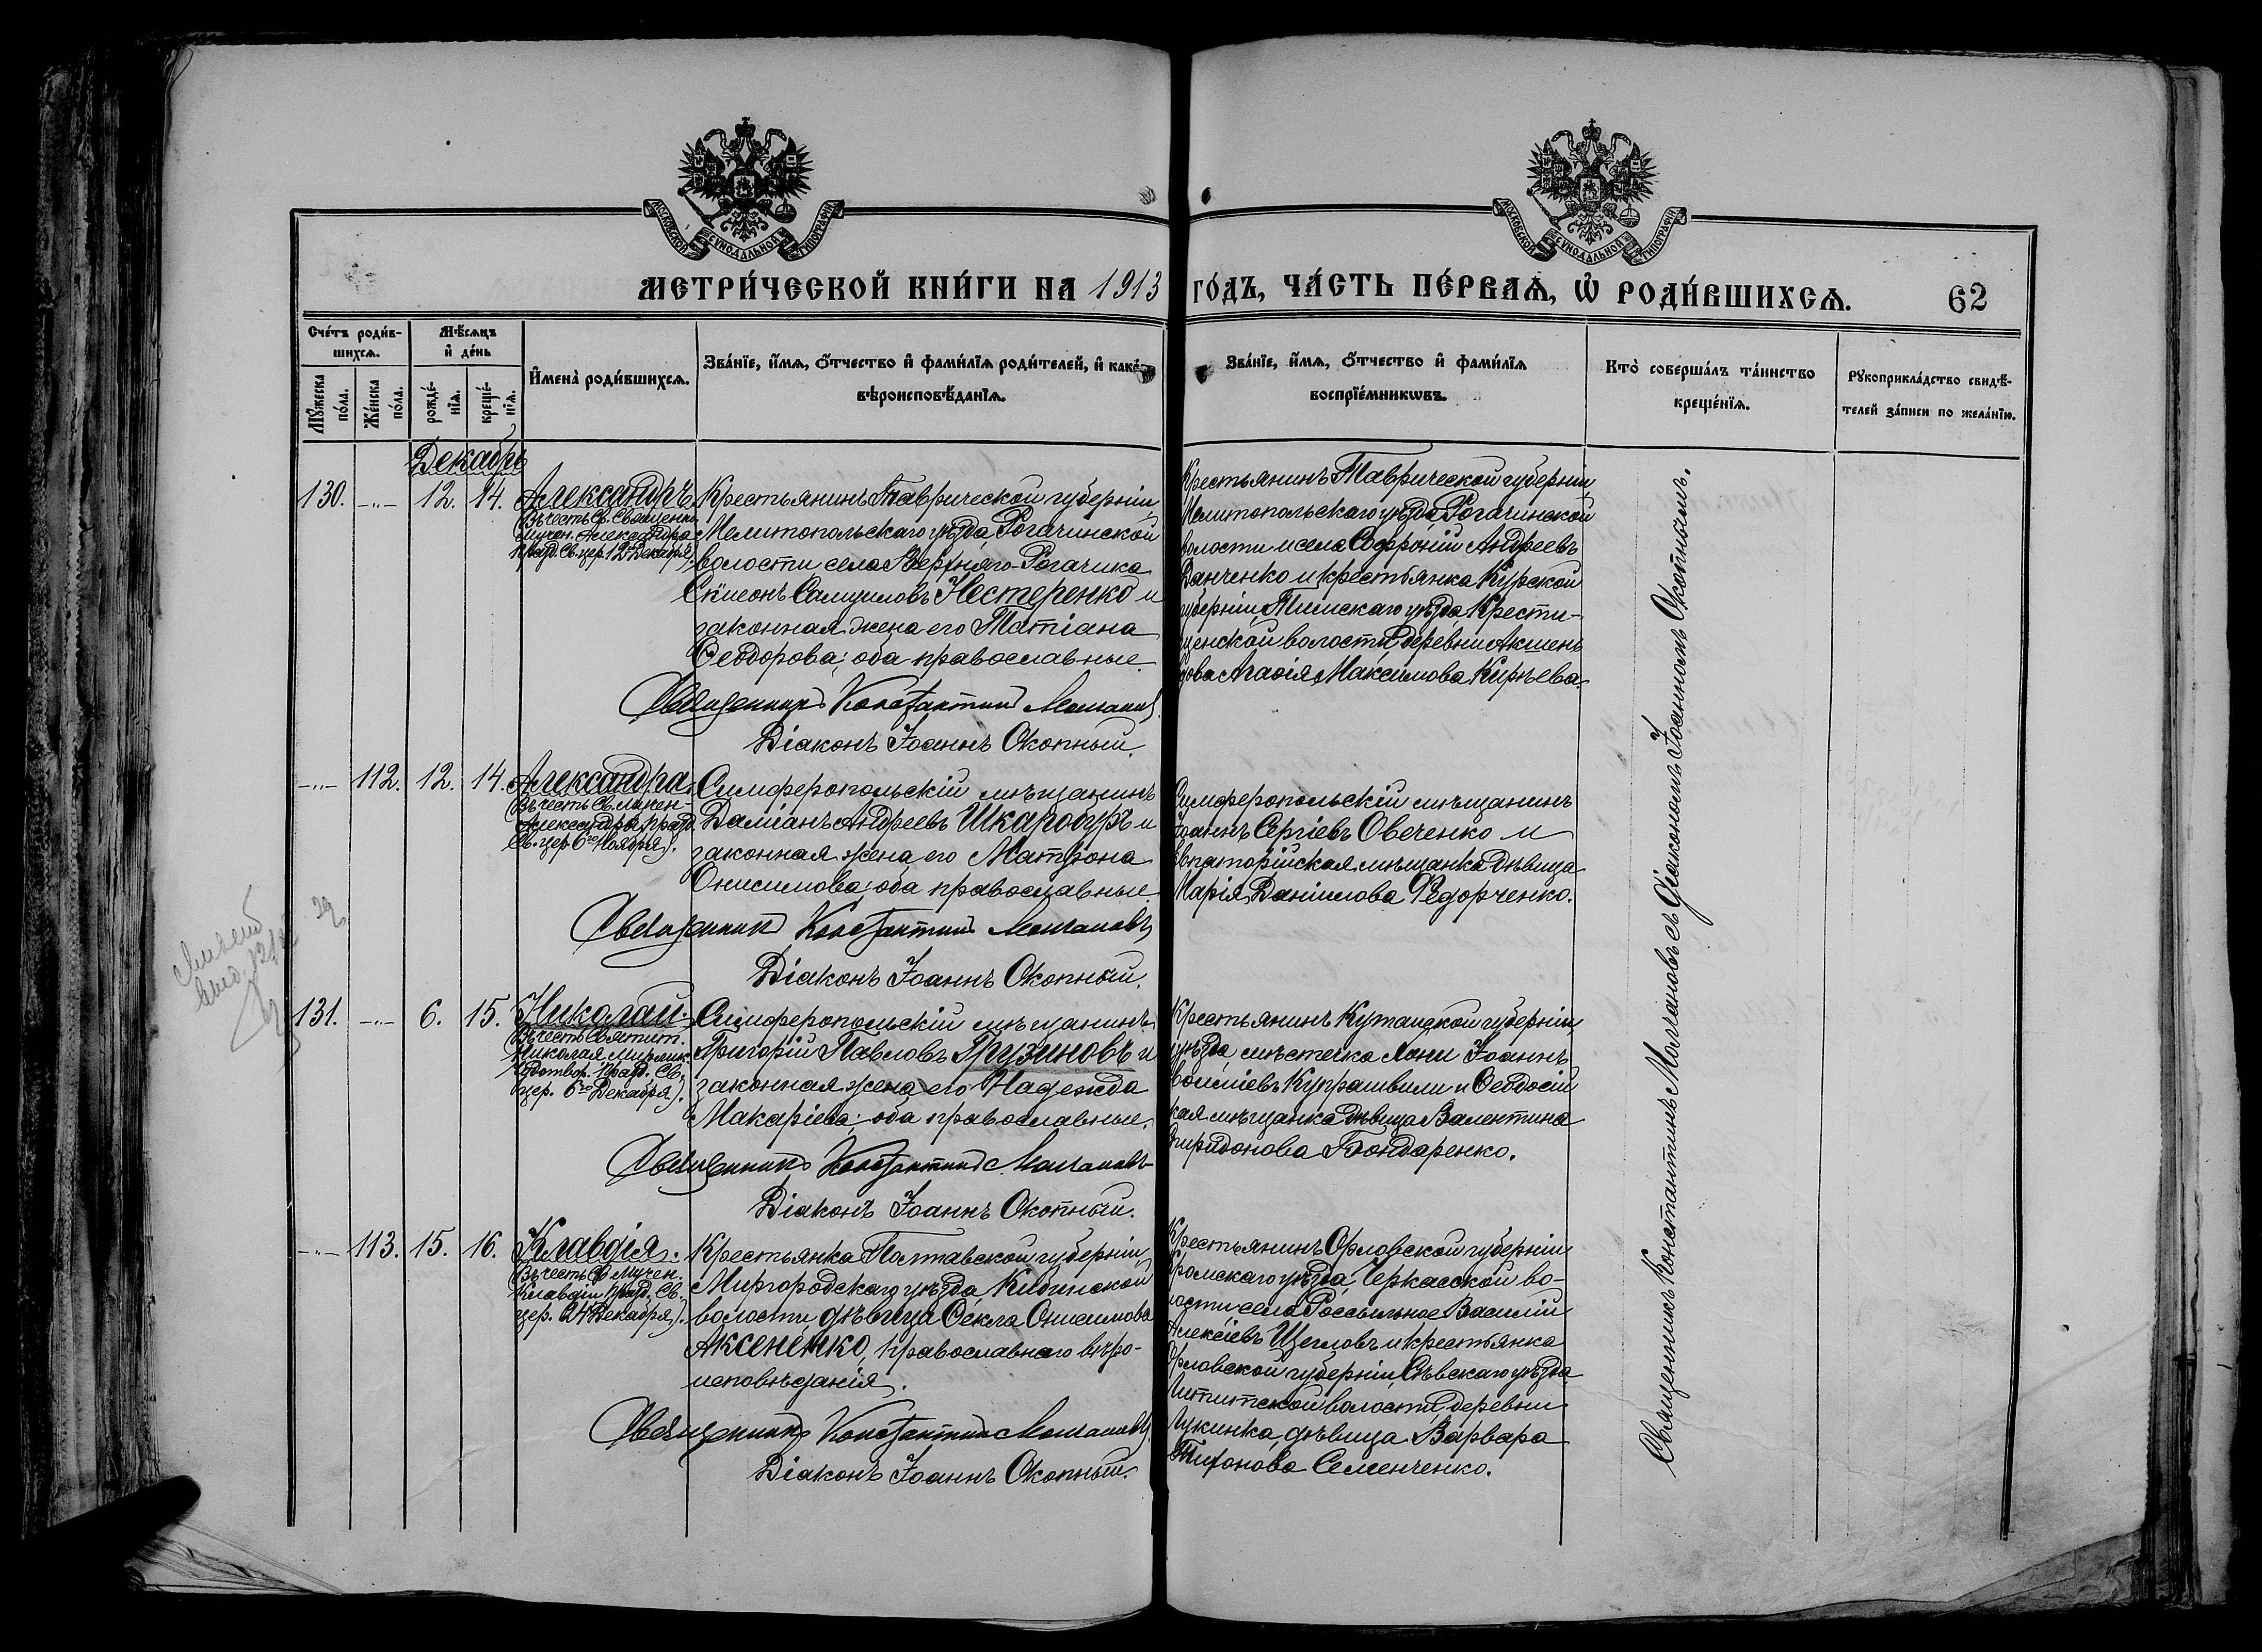 МОСКОВСКОЙ СУНОДАЛЬНОЙ ТИПОГРАФІИ
МОСКОВСКОЙ СУНОДАЛЬНОЙ ТИПОГРАФІИ
МЕТРИ́ЧЕСКОЙ КНИ́ГИ НА 1913 ГО́ДЪ, ЧА́СТЬ ПЕ́РВАѦ, Ѡ҆ РОДИ́ВШИХСѦ. 62
Сче́тъ роди́вшихсѧ.
Мꙋ́жеска по́ла.
Же́нска по́ла.
Мѣ́сѧцъ и҆ де́нь
рожде́нїѧ.
креще́нїѧ.
И҆мена̀ роди́вшихсѧ.
Зва́нїе, и҆́мѧ, ѻ҆́тчество и҆ фами́лїѧ роди́телей, и҆ како́
вѣроисповѣ́данїѧ.
Зва́нїе, и҆́мѧ, ѻ҆́тчество и҆ фами́лїѧ
воспрїе́мникѡвъ.
Кто̀ соверша́лъ та́инство
креще́нїѧ.
Рꙋкоприкла́дство свидѣ́-
телей за́писи по жела́нїю.
Декабрь
130. -"- 12. 14. Александръ
Въ честь Св. Священно
мучен. Александра
празд. Св. цер. 12 Декабря).
Крестьянинъ Таврической губерніи,
Мелитопольскаго уѣзда, Рогачинской
волости села Верхняго-Рогачика
Симеонъ Самуиловъ Нестеренко и
законная жена его Татіана
Ѳеодорова; оба православные.
Священникъ Константинъ Молчановъ
Діаконъ Іоаннъ Окопный.
Крестьянинъ Таврической губерніи,
Мелитопольскаго уѣзда, Рогачинской
волости и села Софроній Андреевъ
Данченко и крестьянка Курской
губерніи, Тимскаго уѣзда, Крести-
щенской волости, деревни
Агаѳія Максимова
-"- 112. 12. 14. Александра.
Въ честь Св. мучен.
Александры празд.
Св. цер. 6го Ноября).
Симферопольскій мѣщанинъ
Даміанъ Андреевъ Шкаробуръ и
законная жена его Матрона
Онисимова; оба православные.
Священникъ Константинъ Молчановъ
Діаконъ Іоаннъ Окопный.
Симферопольскій мѣщанинъ
Іоаннъ Сергіевъ Овеченко и
Евпаторійская мѣщанка дѣвица
Марія Даніилова Федорченко.
131. -"- 6. 15. Николай.
Въ честь Святит.
Николая Мирлик.
Чудотвор. празд. Св.
цер. 6го Декабря).
Симферопольскій мѣщанинъ
Григорій Павловъ Грузиновъ и
законная жена его Надежда
Макаріева; оба православные.
Священникъ Константинъ Молчановъ
Діаконъ Іоаннъ Окопный.
Крестьянинъ Кутаиской губерніи,
уѣзда, мѣстечка Іоаннъ
Купрашвили и Ѳеодосій
кая мѣщанка дѣвица Валентина
Спиридонова Бондаренко.
-"- 113. 15. 16. Клавдія.
Въ честь Св. Мучен.
Клавдіи празд. Св.
цер. 24 Декабря).
Крестьянка Полтавской губерніи,
Миргородскаго уѣзда, Кибинской
волости, дѣвица Ѳекла Онисимова
Аксененко, православнаго вѣро-
исповѣданія.
Священникъ Константинъ Молчановъ
Діаконъ Іоаннъ Окопный.
Крестьянинъ Орловской губерніи
Кромскаго уѣзда, Черкасской во-
лости села Россыльное Василій
Алексіевъ Щегловъ и крестьянка
Орловской губерніи, Сѣвскаго уѣзда,
волости, деревни
дѣвица Варвара
Тихонова Семенченко.
Священникъ Константинъ Молчановъ съ діакономъ Іоанномъ Окопнымъ.